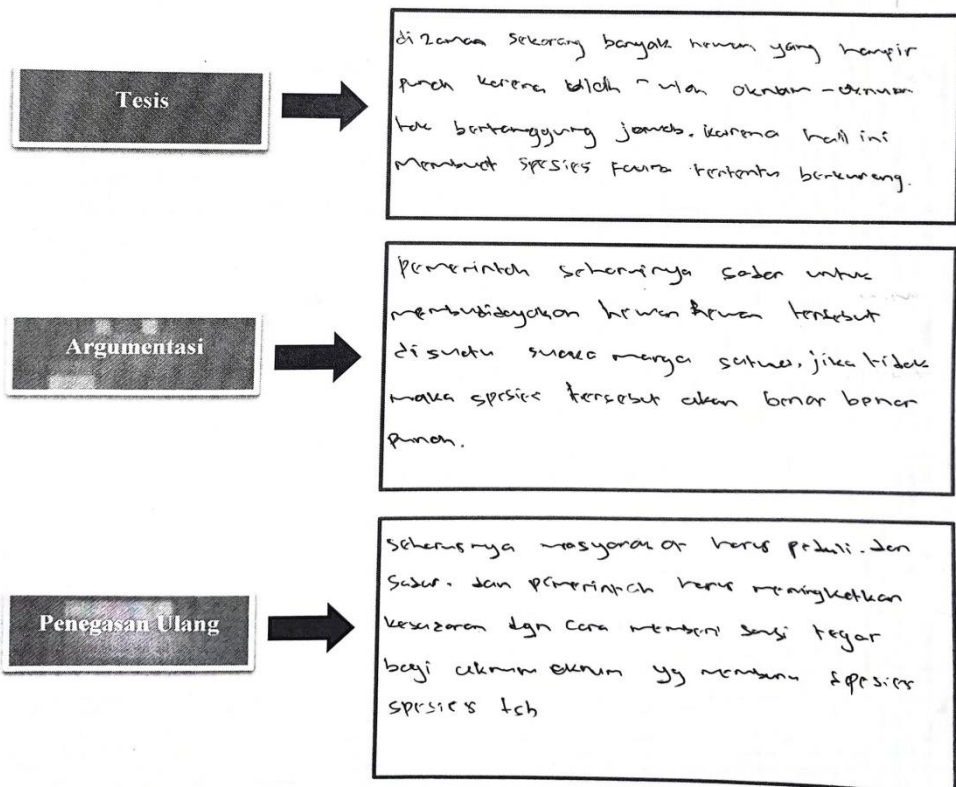 Tesis
di zaman sekarang banyak hewan yang hampir
punah karena ulah - ulah oknum - oknum
tak bertanggung jawab. karena hal ini
Membuat spesies Fauna tertentu berkurang.
Argumentasi
pemerintah seharusnya sadar untuk
membudidayakan hewan hewan tersebut
di suatu suaka marga satwa. jika tidak
maka spesies tersebut akan benar benar
punah.
Penegasan Ulang
seharusnya masyarakat harus peduli. dan
sadar. dan pemerintah harus meningkatkan
kesadaran dgn cara memberi tegas
bagi oknum oknum yg memburu spesies
spesies tsb